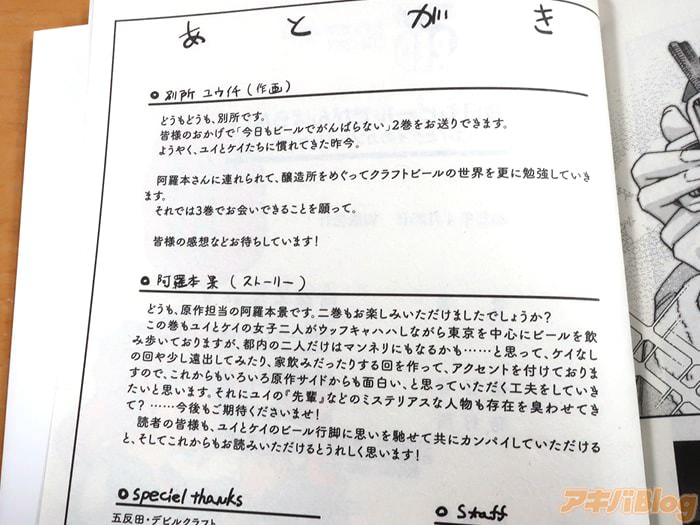 あとがき
別所 ユウイチ(作画)
どうもどうも、別所です。
皆様のおかげで「今日もビールでがんばらない」2巻をお送りできます。
ようやく、ユイとケイたちに慣れてきた昨今。
阿羅本さんに連れられて、醸造所をめぐってクラフトビールの世界を更に勉強していき
ます。
それでは3巻でお会いできることを願って。
皆様の感想などお待ちしています!
阿羅本 景 (ストーリー)
どうも、原作担当の阿羅本景です。二巻もお楽しみいただけましたでしょうか?
この巻もユイとケイの女子二人がウッフキャハハしながら東京を中心にビールを飲
み歩いておりますが、都内の二人だけはマンネリにもなるかも……と思って、ケイなし
の回や少し遠出してみたり、家飲みだったりする回を作って、アクセントを付けておりま
すので、これからもいろいろ原作サイドからも面白い、と思っていただく工夫をしていき
たいと思います。それにユイの『先輩』などのミステリアスな人物も存在を臭わせてき
て? ……今後もご期待くださいませ!
読者の皆様も、ユイとケイのビール行脚に思いを馳せて共にカンパイしていただける
と、そしてこれからもお読みいただけるとうれしく思います!
speciel thanks
五反田・デビルクラフト
Staff
アキバBlog